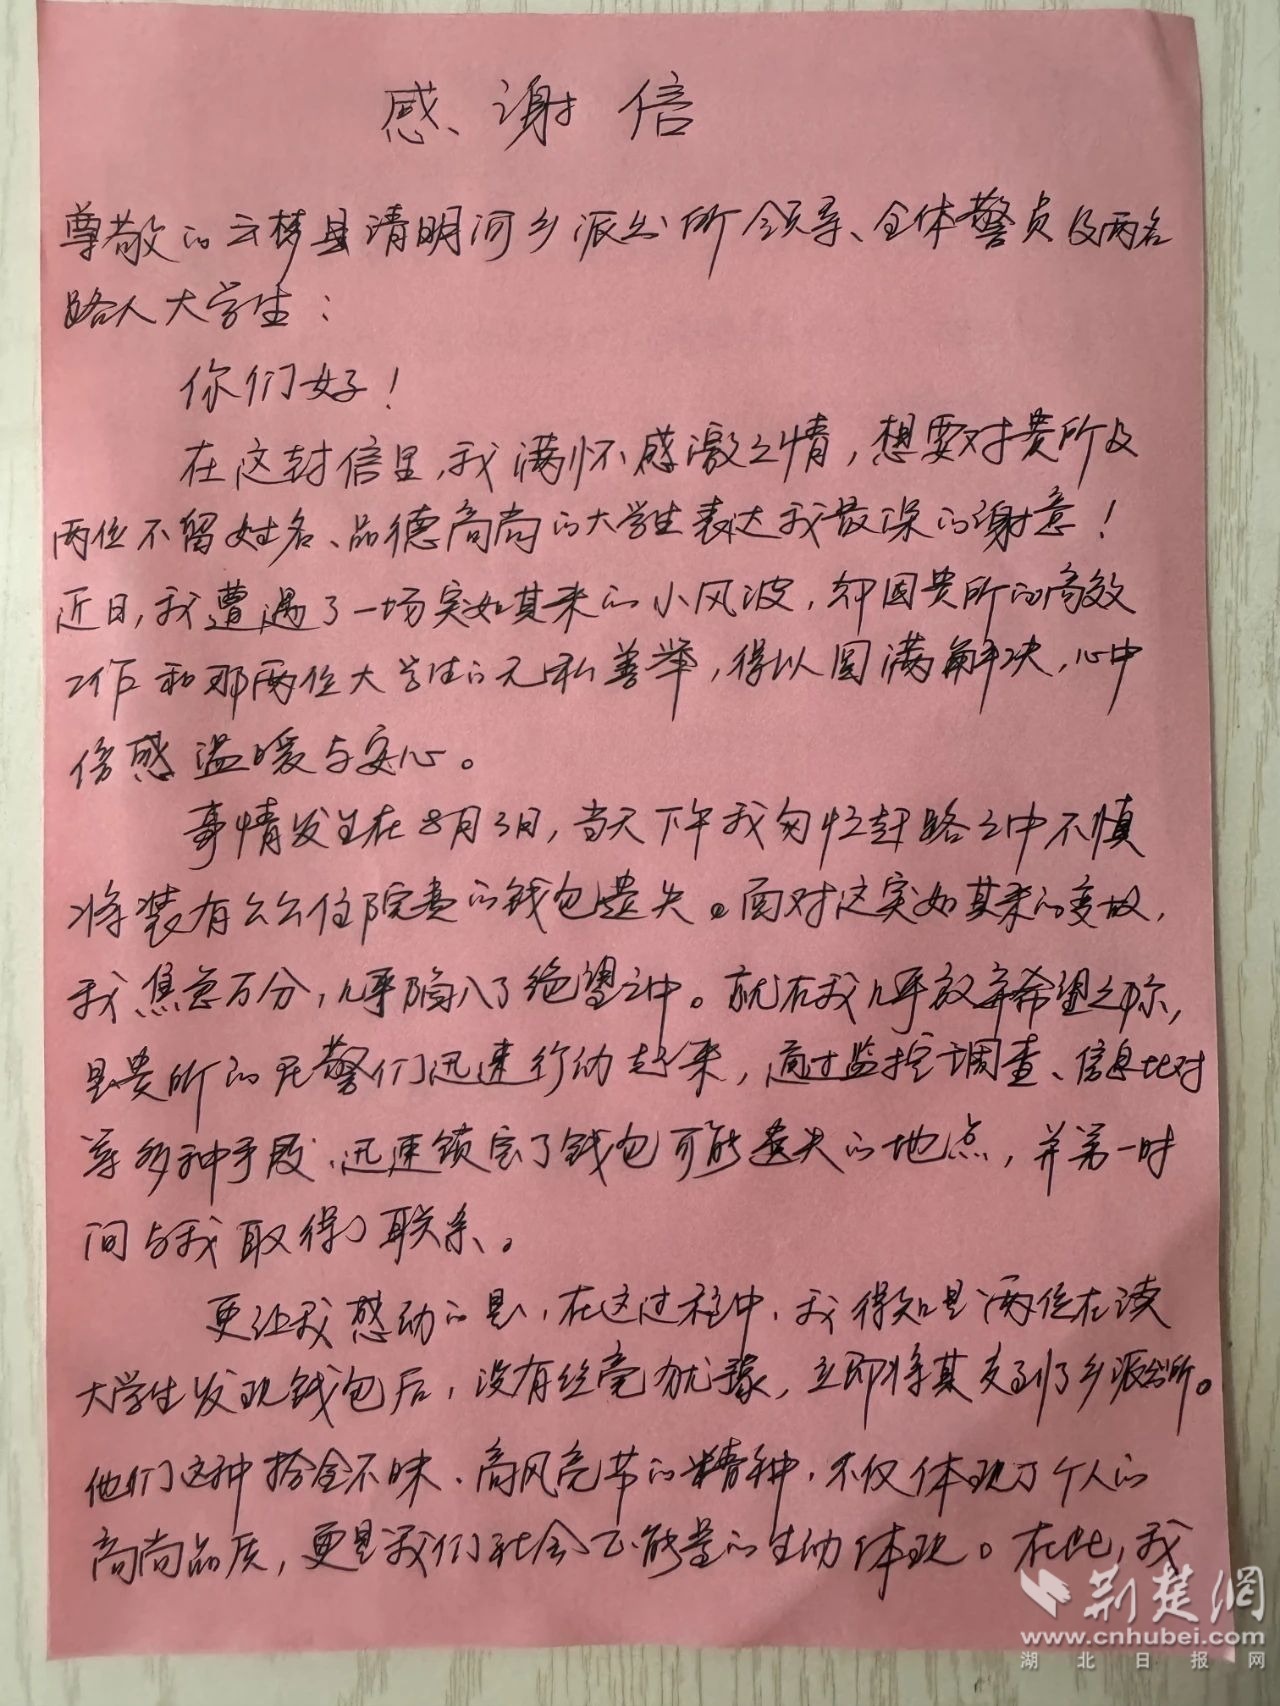 感谢信
尊敬的云梦县清明河乡派出所领导、全体警员及两名
路人大学生：
你们好！
在这封信里，我满怀感激之情，想要对贵所及
两位不留姓名、品德高尚的大学生表达我最深的谢意！
近日，我遭遇了一场突如其来的小风波，却因贵所的高效
工作和那两位大学生的无私善举，得以圆满解决，心中
倍感温暖与安心。
事情发生在8月3日，当天下午我匆忙赶路之中不慎
将装有公公住院费的钱包遗失。面对这突如其来的变故，
我焦急万分，几乎陷入了绝望之中。就在我几乎放弃希望之际，
是贵所的民警们迅速行动起来，通过监控调查、信息比对
等多种手段，迅速锁定了钱包可能遗失的地点，并第一时
间与我取得了联系。
更让我感动的是，在这过程中，我得知是两位在读
大学生发现钱包后，没有丝毫犹豫，立即将其交到了乡派出所。
他们这种拾金不昧、高风亮节的精神，不仅体现了个人的
高尚品质，更是我们社会正能量的生动体现。在此，我
荆楚网
www.cnhubei.com
湖北日报网